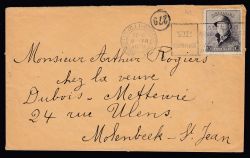 279
Monsieur Arthur Rogiers
chez la veuve
Dubois-Mettewie
24 rue Ulens
Molenbeek-St Jean